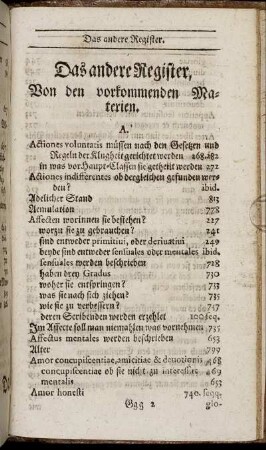 Das andere Register.
Das andere Register,
Von den vorkommenden Ma-
terien.
A.
Actiones voluntatis müssen nach den Gesetzen und
Regeln der Klugheit gerichtet werden 268.282
in was vor Haupt-Classen sie getheilt werden 272
Actiones indifferentes ob dergleichen gefunden wer-
den? ibid.
Adelicher Stand 813
Aemulation 778
Affecten worinnen sie bestehen? 227
worzu sie zu gebrauchen? 241
sind entweder primitiui, oder deriuatiui 249
beyde sind entweder sensuales oder mentales ibid.
sensuales werden beschrieben 728
haben drey Gradus 730
woher sie entspringen? 731
was sie nach sich ziehen? 735
wie sie zu verbessern? 737
deren Scribenden werden erzehlet 100 seq.
Im Affecte soll man niemahln was vornehmen 735
Affectus mentales werden beschrieben 653
Alter 799
Amor concupiscentiae, amicitiae & deuotionis 468
concupiscentiae ob sie nicht zu interessirt 469
mentalis 653
Amor honesti 740. seqq.
Ggg 2
glo-